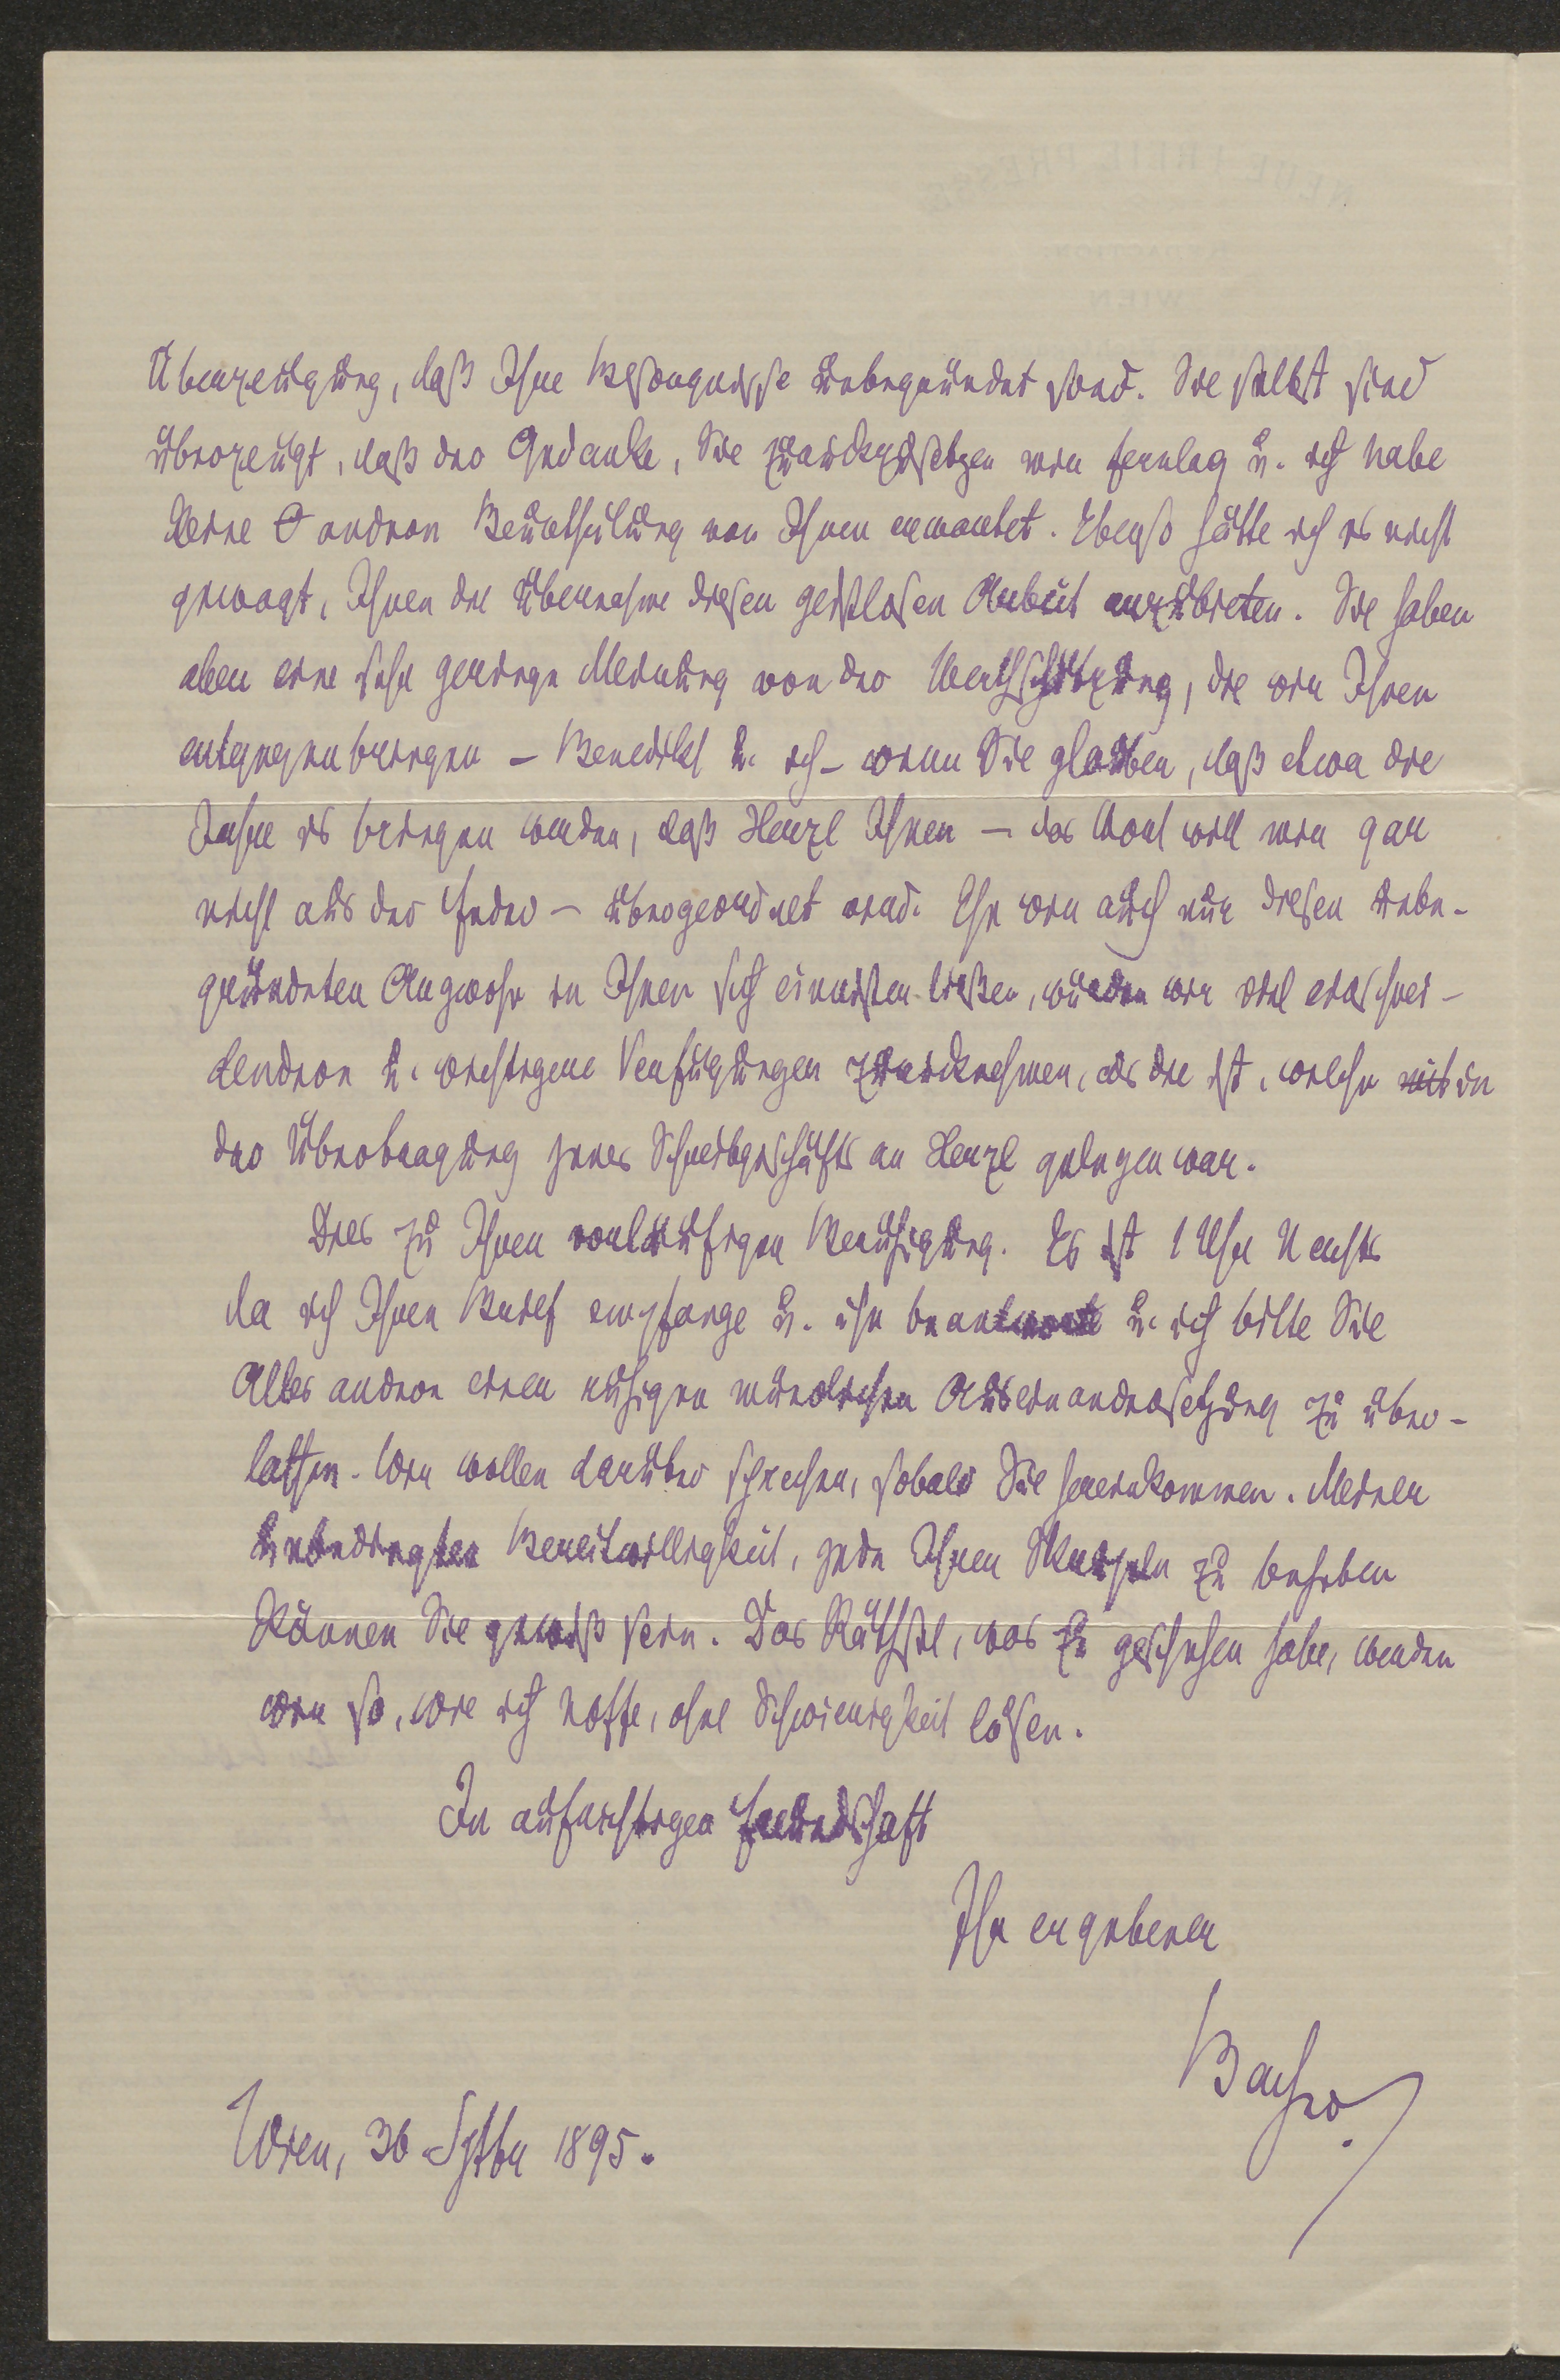 Überzeugung, daß Ihre Besorgnisse unbegründet sind. Sie selbst sind
überzeugt, daß der Gedanke, Sie zurückzusetzen mir fernlag u. ich habe
keine andere Beurtheilung von Ihnen erwartet. Ebenso hätte ich es nicht
gewagt, Ihnen die Übernahme dieser geistlosen Arbeit anzubieten. Sie haben
aber eine sehr geringe Meinung von der Werthschätzung, die wir Ihnen
entgegenbringen – Benedikt u. ich – wenn Sie glauben, daß etwa die
Jahre es bringen werden, daß Herzl Ihnen – das Wort will mir gar
nicht aus der Feder – übergeordnet wird. Ehe wir auch nur diesen unbe-
gründeten Argwohn in Ihnen sich einnisten ließen, würden wir viel einschnei-
dendere u. wichtigere Verfügungen zurücknehmen, als die ist, welche in
der Übertragung jenes Schreibgeschäfts an Herzl gelegen war.
Dies zu Ihrer vorläufigen Beruhigung. Es ist 1 Uhr Nachts
da ich Ihren Brief empfange u. ihn beantworte u. ich bitte Sie
Alles andere einer ruhigen mündlichen Auseinandersetzung zu über-
lassen. Wir wollen darüber sprechen, sobald Sie hereinkommen. Meiner
unbedingten Bereitwilligkeit, jede Ihrer Skrupeln zu beheben
können Sie gewiß sein. Das Räthsel, was zu geschehen habe, werden
wir so, wie ich hoffe, ohne Schwierigkeit lösen.
In aufrichtiger Freundschaft
Ihr ergebener
Bacher
Wien, 30 Septbr 1895.
NEUE FREIE PRESSE
REDACTION
WIEN